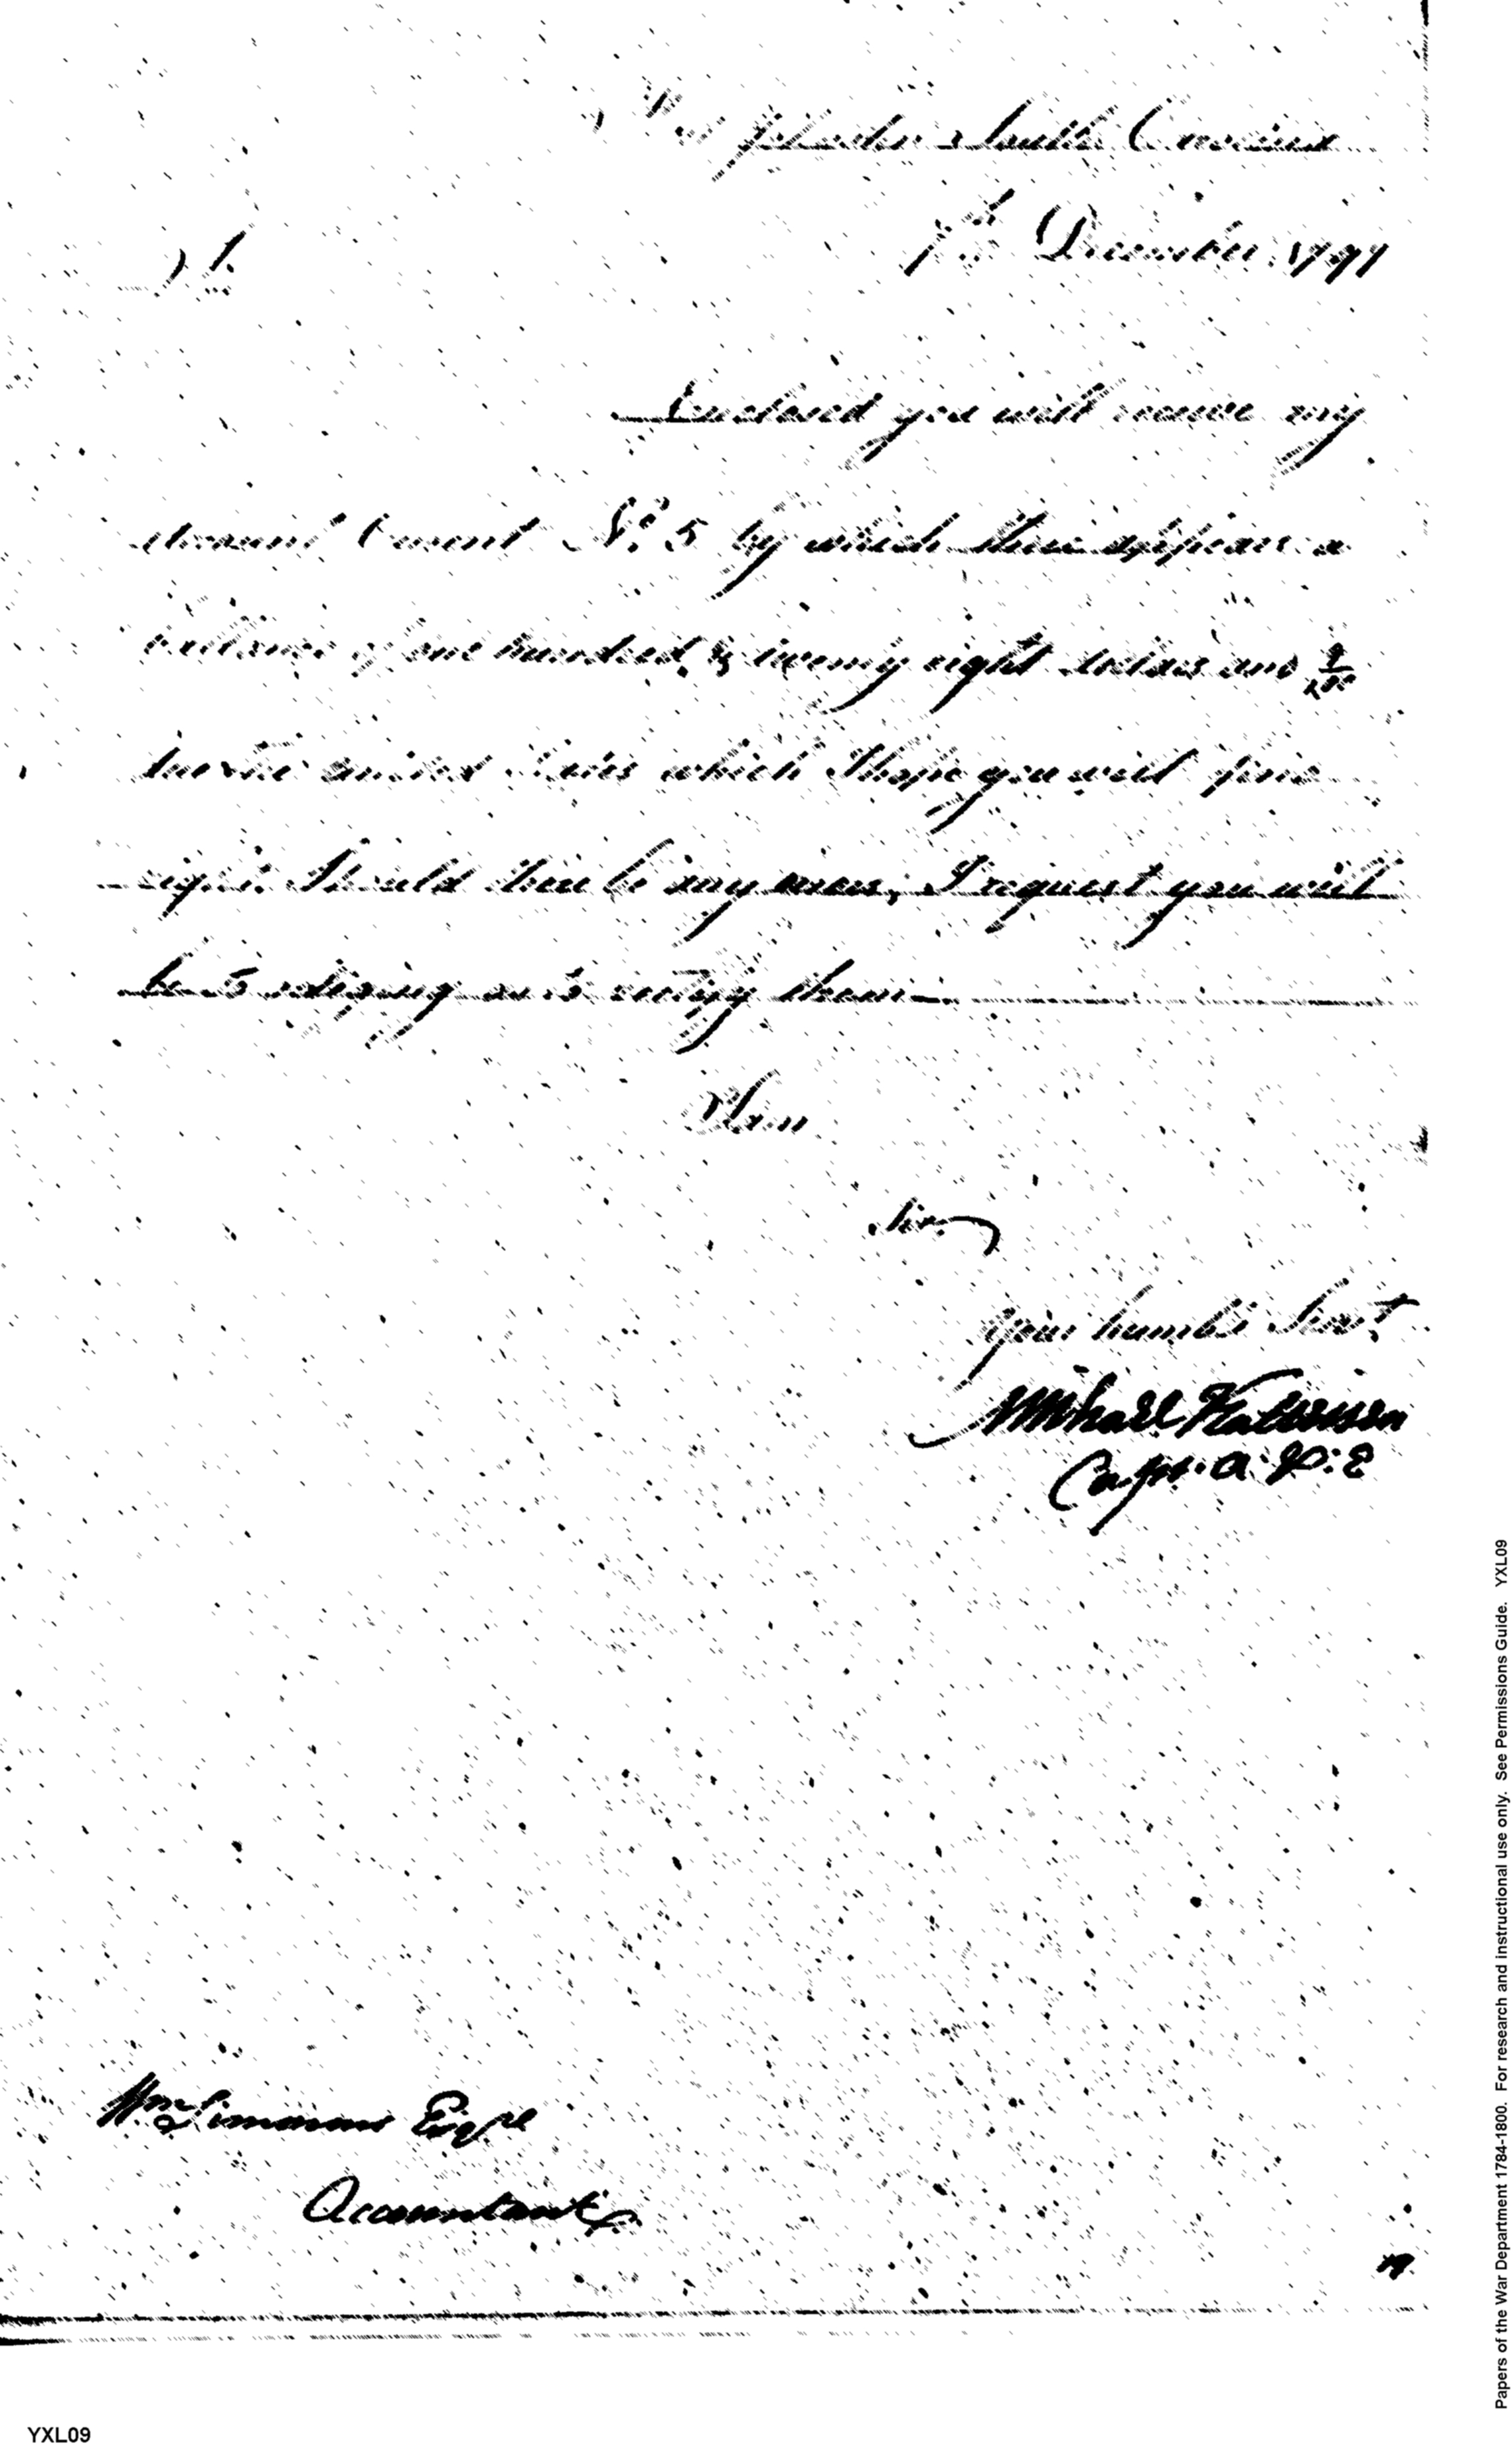 Fort Johnston South Carolina
7th December 1797
Sir
Enclosed you will receive my
Account Current No. 5 by which there appears a
ballance of one hundred & twenty eight dollars and
due the United States which I hope you will find
right. Should there be any errors, I request you will
be so obliging as to rectify them
I am
Sir
Your humble Servt
Michael Kalteisen
Capt. A & E
Wm Simmons Esqre
Accountant
Papers of the War Department 1784-1800. For research and instructional use only. See Permissions Guide. YXL09
YXL09